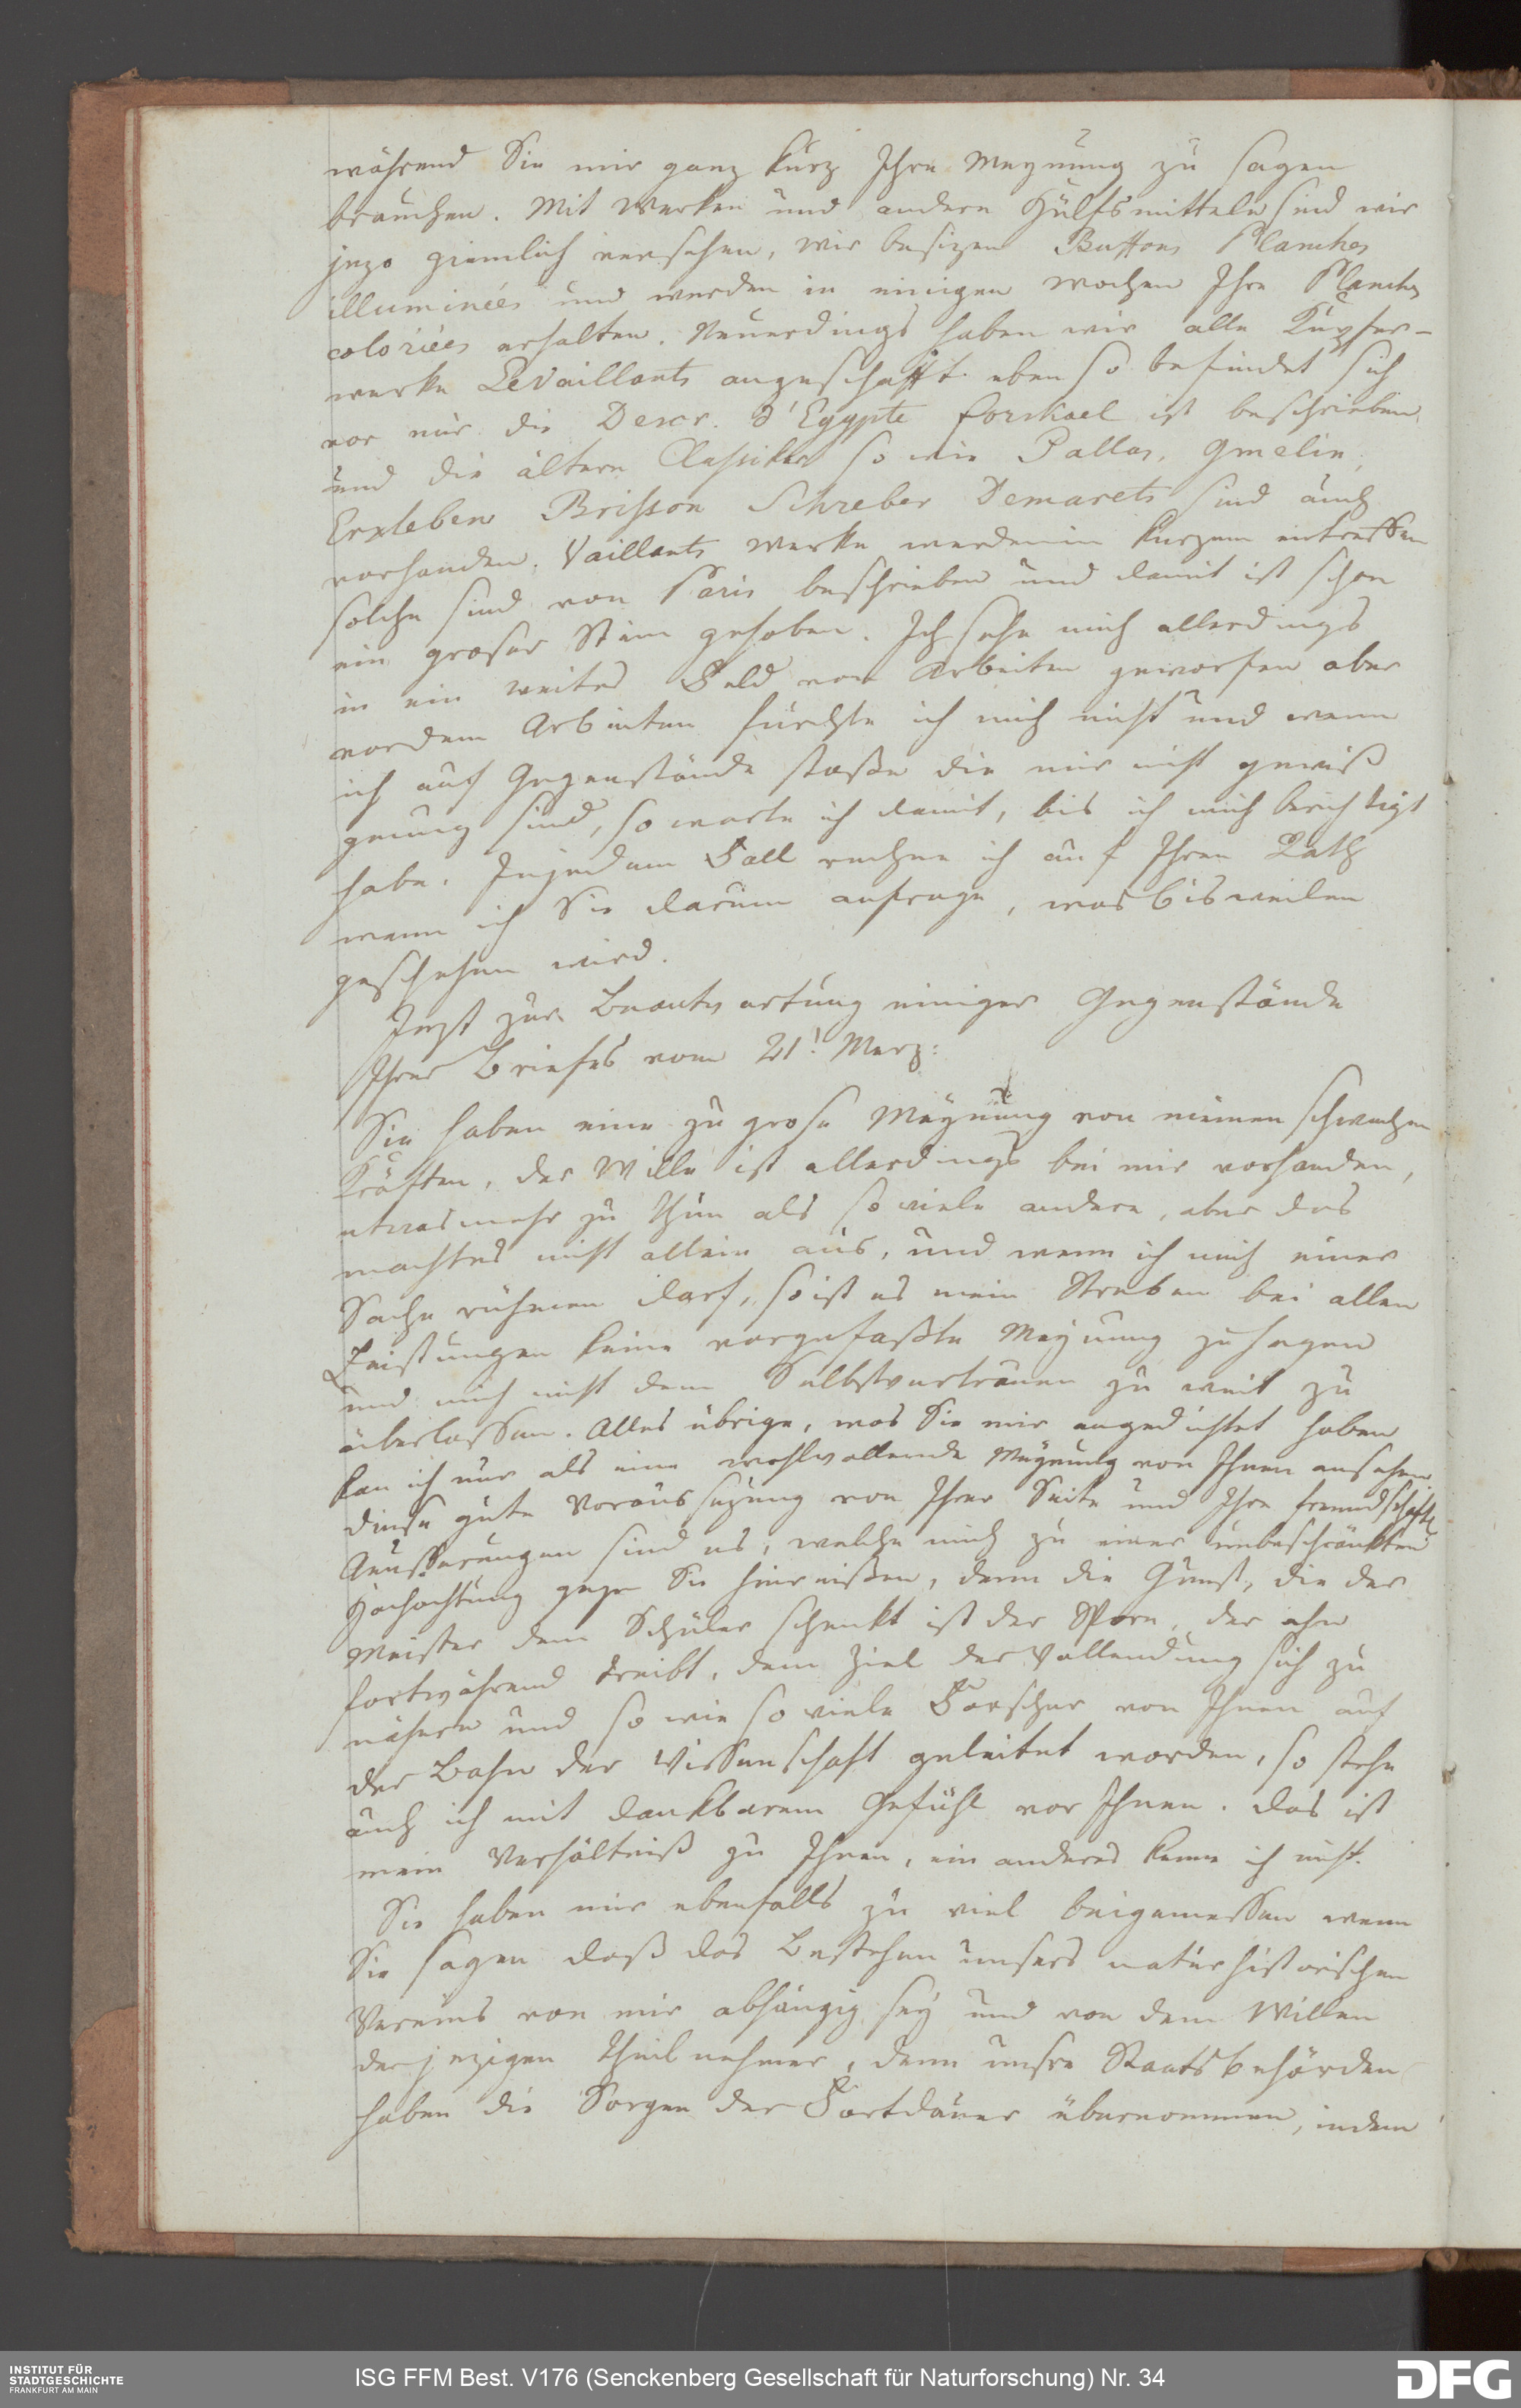 während Sie mir ganz kurz Ihre Meynung zu sagen
brauchen. Mit Werken und andern Hülfsmitteln sind wir
jezo ziemlich versehen, wir besizen Buffons Planches
illuminées und werden in einigen Wochen Ihre Planches
coloriées erhalten. Neuerdings haben wir alle Kupfer-
werke LeVaillants angeschafft. eben so befindet sich
vor mir die Descr. d'Egypte Forskael ist beschrieben
und die ältern Classiker so wie Pallas, Gmelin,
Erxleben Brisson Schreber Demarets sind auch
vorhanden. Vaillants Werke werden in kurzem eintreffen
solche sind von Paris beschrieben und damit ist schon
ein groser Stein gehoben. Ich sehe mich allerdings
in ein weites Feld von Arbeiten geworfen aber
vor dem Arbeiten fürchte ich mich nicht und wenn
ich auf Gegenstände stoße die mir nicht gewiß
genung sind, so warte ich damit, bis ich mich berichtigt
habe. In jedem Fall rechne ich auf Ihren Rath
wenn ich Sie darum anfrage, was bisweilen
geschehen wird.
Jezt zur Beantwortung einiger Gegenstände
Ihres Briefes vom 21! Merz:
Sie haben eine zu grose Meynung von meinen schwachen
Kräften, der Wille ist allerdings bei mir vorhanden,
etwas mehr zu thun als so viele andere, aber das
macht es nicht allein aus, und wenn ich mich einer
Sache rühmen darf, so ist es mein Streben bei allen
Leistungen keine vorgefaßte Meynung zu hegen
und mich nicht dem Selbstvertrauen zu weit zu
überlassen. Alles übrige, was Sie mir angedichtet haben
kan ich nur als eine wohlwollende Meynung von Ihnen ansehen
diese gute Voraussezung von Ihrer Seite und Ihre freundschaftl
Aeusserungen sind es, welche mich zu einer unbeschränkten
Hochachtung gegen Sie hinreißen, denn die Gunst, die der
Meister dem Schüler schenkt ist der Sporn, der ihn
fortwährend treibt, dem Ziel der Vollendung sich zu
nähern und so wie so viele Forscher von Ihnen auf
der Bahn der Wissenschaft geleitet worden, so stehe
auch ich mit dankbarem Gefühl vor Ihnen. das ist
mein Verhältniß zu Ihnen, ein anderes kenne ich nicht.
Sie haben mir ebenfalls zu viel beigemessen wenn
Sie sagen daß das Bestehen unsers naturhistorischen
Vereins von mir abhängig sey und von dem Willen
der jezigen Theilnehmer, denn unsre Staatsbehörden
haben die Sorgen der Fortdauer übernommen, indem
INSTITUT FÜR
STADTGESCHICHTE
FRANKFURT AM MAIN
ISG FFM Best. V176 (Senckenberg Gesellschaft für Naturforschung) Nr. 34
DFG